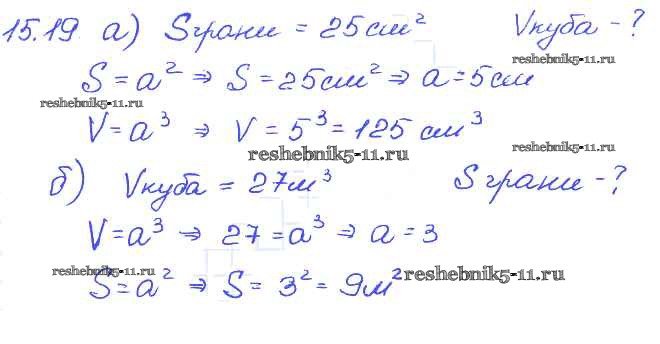 15.19 а) Sграни = 25см² Vкуба - ?
reshebnik5-11.ru
S = a² ⇒ S = 25см² ⇒ a = 5см
reshebnik5-11.ru
V = a³ ⇒ V = 5³ = 125 см³
reshebnik5-11.ru
reshebnik5-11.ru
б) Vкуба = 27м³ Sграни - ?
V = a³ ⇒ 27 = a³ ⇒ a = 3
reshebnik5-11.ru
S = a² ⇒ S = 3² = 9м²
reshebnik5-11.ru